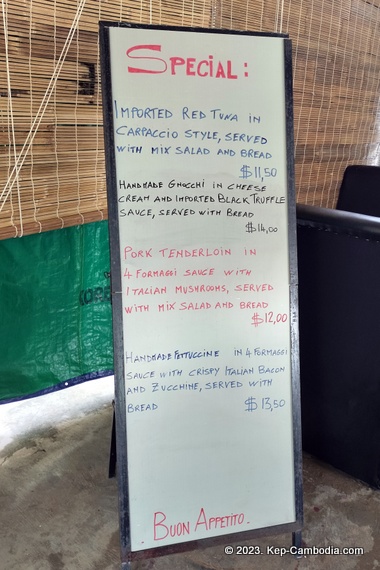 SPECIAL:
IMPORTED RED TUNA IN
CARPACCIO STYLE, SERVED
WITH MIX SALAD AND BREAD
$11,50
HANDMADE GNOCCHI IN CHEESE
CREAM AND IMPORTED BLACK TRUFFLE
SAUCE, SERVED WITH BREAD
$14,00
PORK TENDERLOIN IN
4 FORMAGGI SAUCE WITH
ITALIAN MUSHROOMS, SERVED
WITH MIX SALAD AND BREAD
$12,00
HANDMADE FETTUCCINE IN 4 FORMAGGI
SAUCE WITH CRISPY ITALIAN BACON
AND ZUCCHINE, SERVED WITH
BREAD $13,50
BUON APPETITO.
© 2023. Kep-Cambodia.com